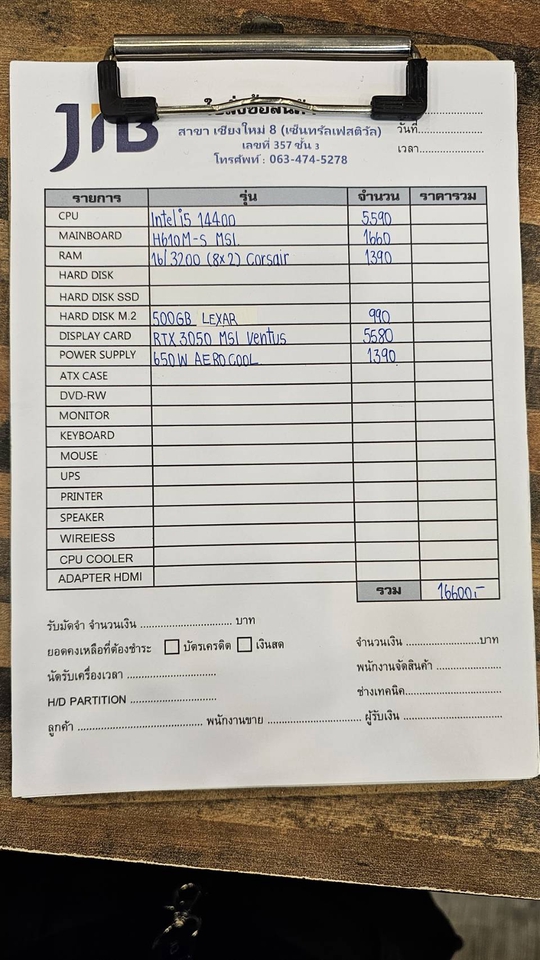 JIB
ใบสั่งซื้อสินค้า
สาขา เชียงใหม่ 8 (เซ็นทรัลเฟสติวัล)
เลขที่ 357 ชั้น 3
โทรศัพท์ : 063-474-5278
วันที่
เวลา
รายการ รุ่น จำนวน ราคารวม
CPU Intel i5 14400 5590
MAINBOARD H610M-S MSI 1660
RAM 16/3200 (8x2) Corsair 1390
HARD DISK
HARD DISK SSD
HARD DISK M.2 500GB LEXAR 990
DISPLAY CARD RTX 3050 MSI Ventus 5580
POWER SUPPLY 650W AEROCOOL 1390
ATX CASE
DVD-RW
MONITOR
KEYBOARD
MOUSE
UPS
PRINTER
SPEAKER
WIREIESS
CPU COOLER
ADAPTER HDMI
รวม 16600.-
รับมัดจำ จำนวนเงิน บาท
ยอดคงเหลือที่ต้องชำระ บัตรเครดิต เงินสด จำนวนเงิน บาท
นัดรับเครื่องเวลา พนักงานจัดสินค้า
H/D PARTITION ช่างเทคนิค
ลูกค้า พนักงานขาย ผู้รับเงิน